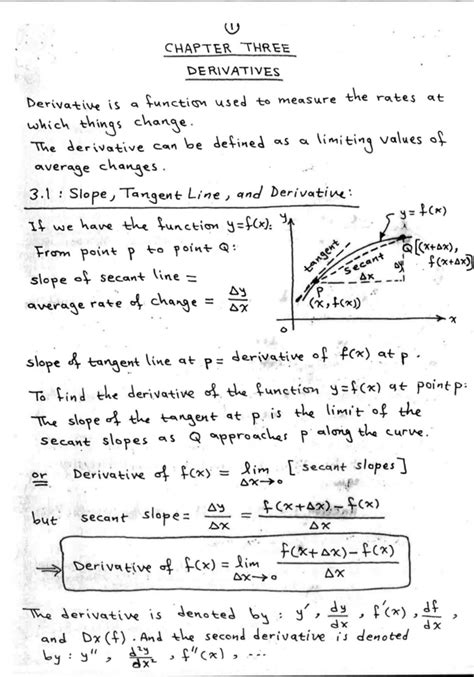 1
CHAPTER THREE
DERIVATIVES
Derivative is a function used to measure the rates at
which things change.
The derivative can be defined as a limiting values of
average changes.
3.1 : Slope, Tangent Line, and Derivative:
If we have the function y=f(x):
From point p to point Q:
slope of secant line =
average rate of change = Δy/Δx
y
y = f(x)
Q[(x+Δx),
f(x+Δx)]
tangent
secant
Δy
Δx
P
(x, f(x))
o
x
slope of tangent line at p = derivative of f(x) at p.
To find the derivative of the function y=f(x) at point p:
The slope of the tangent at p is the limit of the
secant slopes as Q approaches p along the curve.
or Derivative of f(x) = lim Δx→0 [secant slopes]
but secant slope = Δy/Δx = f(x+Δx)-f(x)/Δx
⇒ Derivative of f(x) = lim Δx→0 f(x+Δx)-f(x)/Δx
The derivative is denoted by : y', dy/dx, f'(x), df/dx,
and Dx(f). And the second derivative is denoted
by : y'', d²y/dx², f''(x), ...